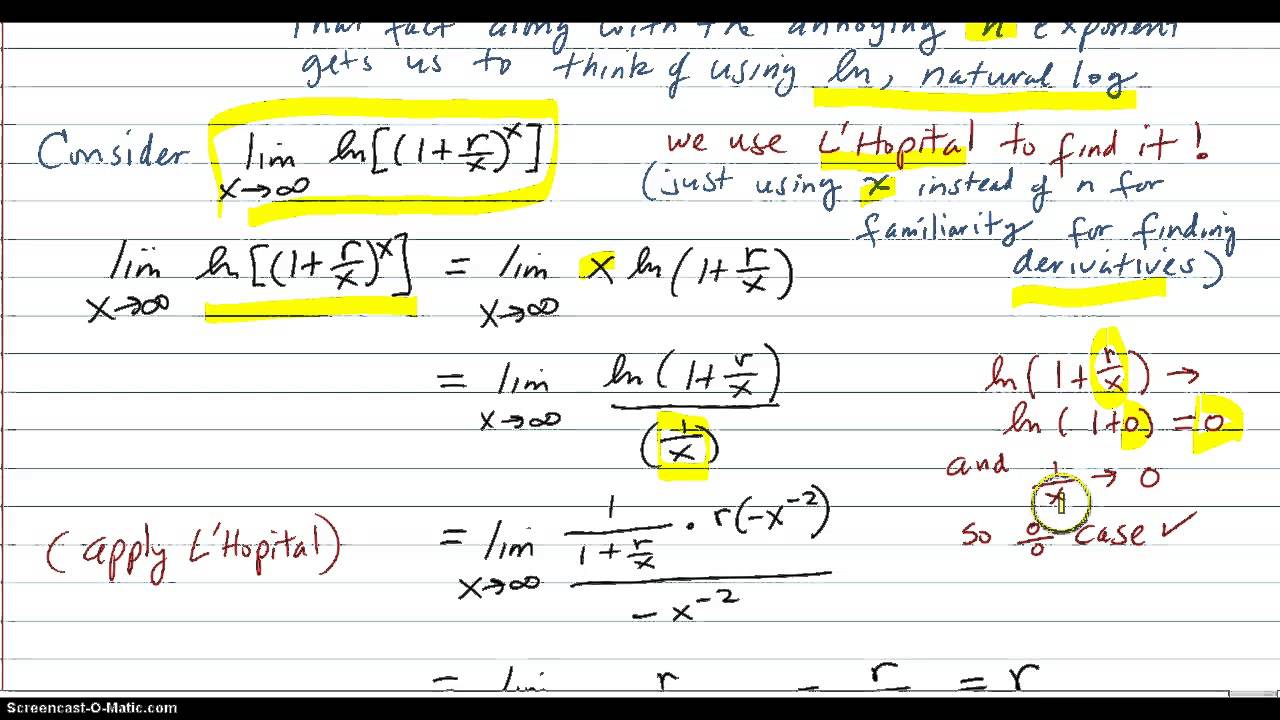 That fact along with the annoying n exponent
gets us to think of using ln, natural log
Consider lim x→∞ ln[(1+r/x)^x]
we use L'Hopital to find it!
(just using x instead of n for
familiarity for finding
derivatives)
lim x→∞ ln[(1+r/x)^x] = lim x→∞ x ln(1+r/x)
= lim x→∞ ln(1+r/x) / (1/x)
ln(1+r/x) →
ln(1+0) = 0
and 1/x → 0
so 0/0 case ✓
(apply L'Hopital)
= lim x→∞ 1/(1+r/x) · r(-x^-2) / -x^-2
= lim r = r = r
Screencast-O-Matic.com